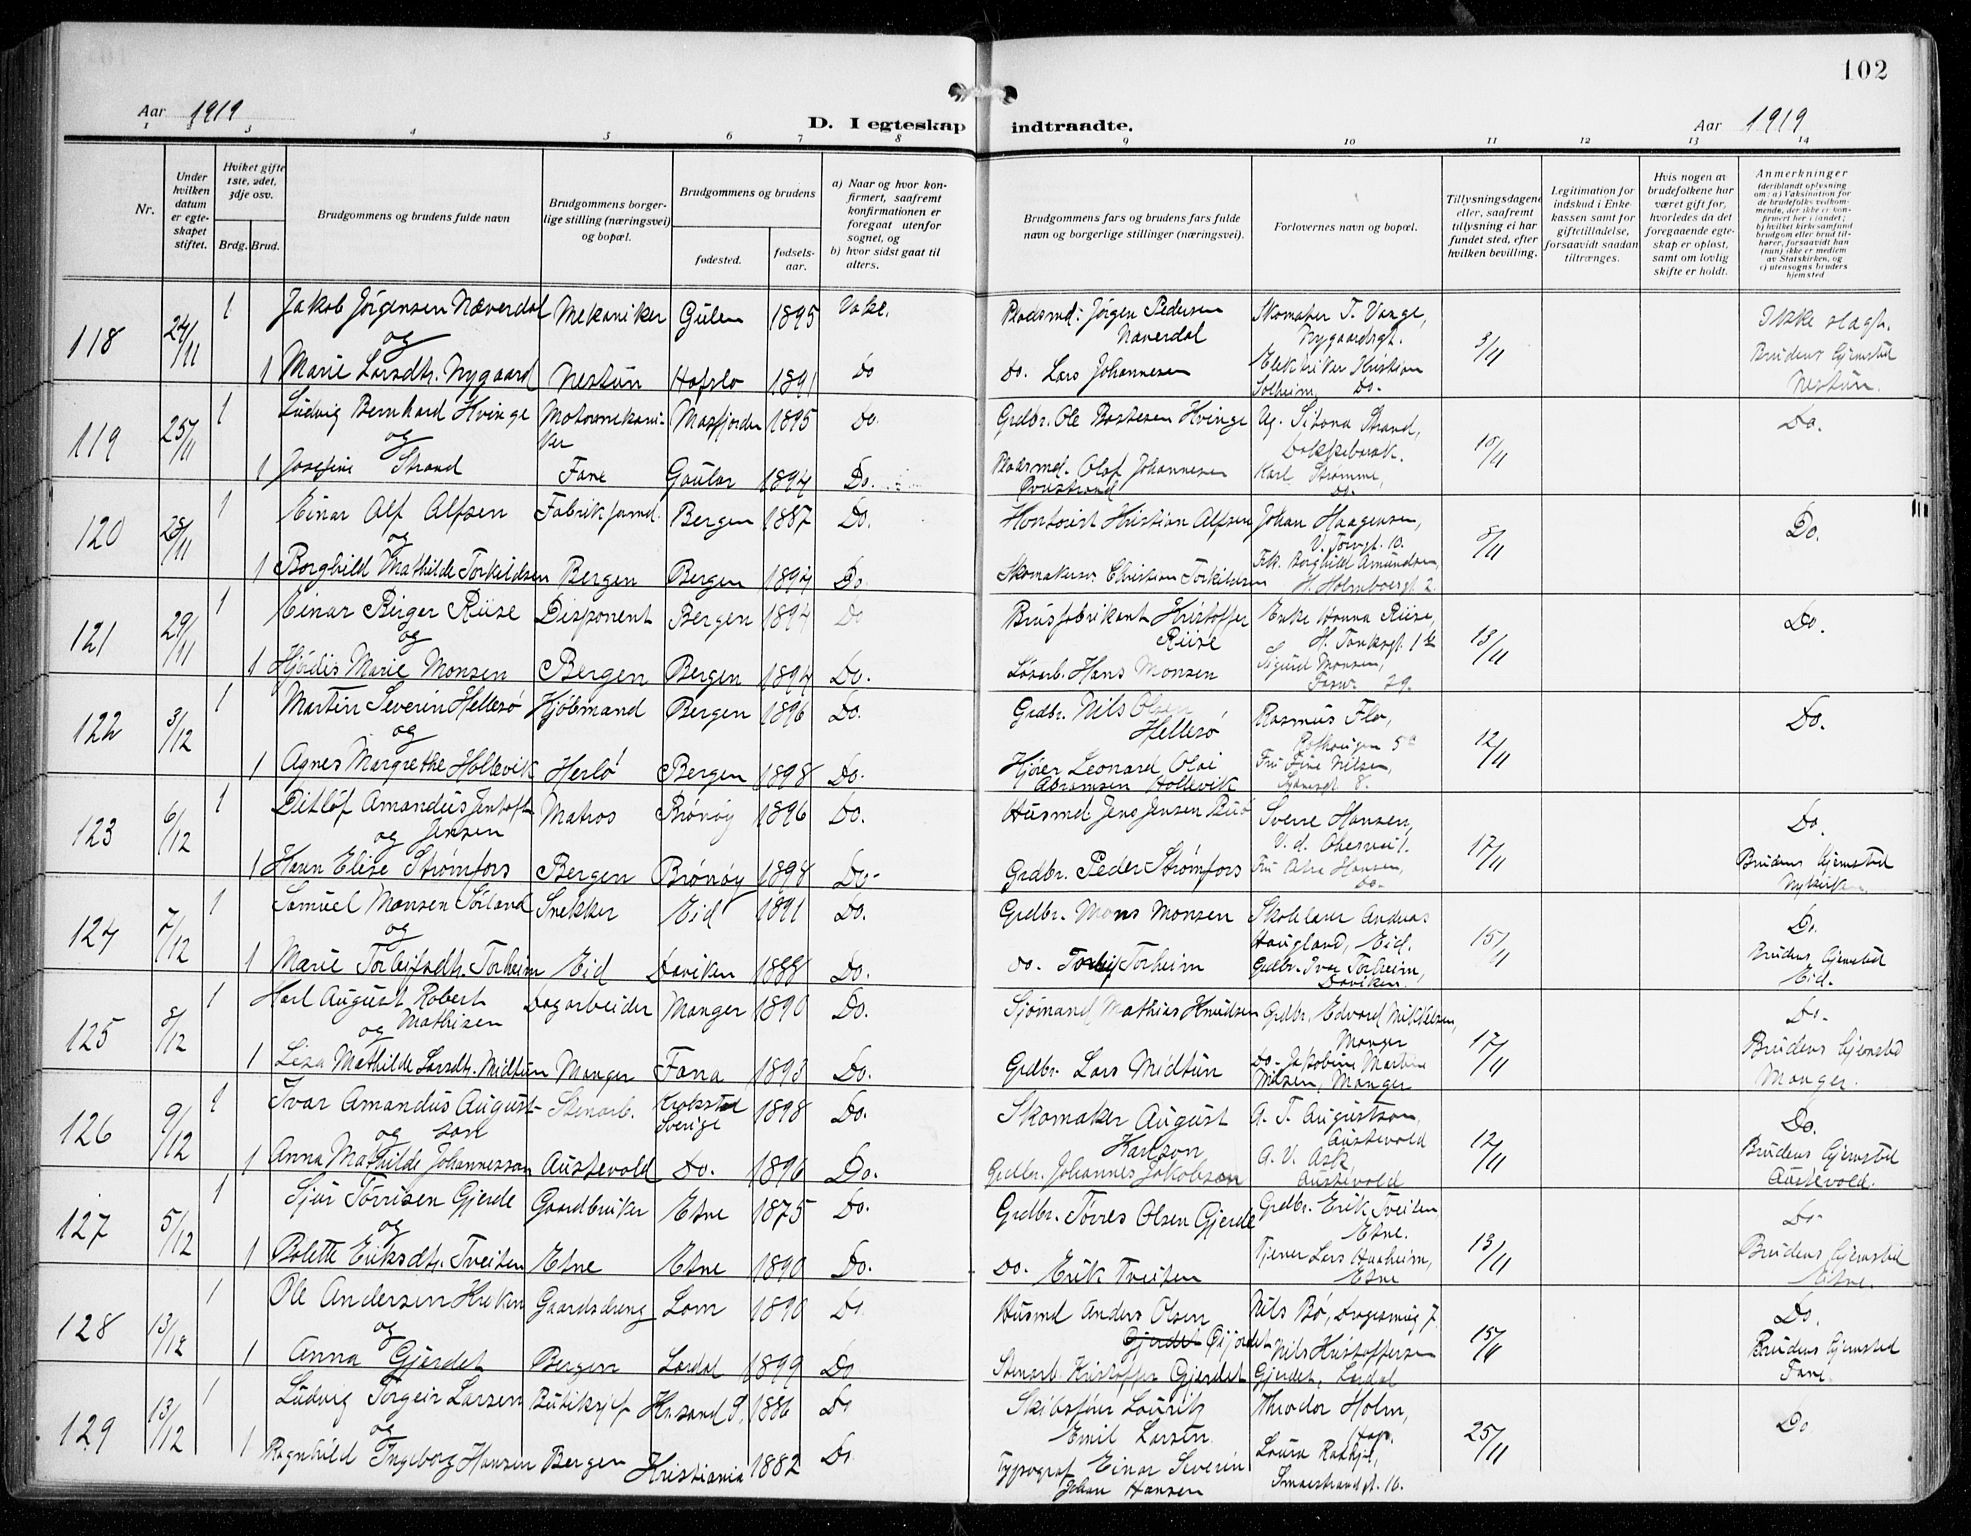 102
Aar 1919
D. I egteskap indtraadte.
Aar 1919
1 2 3 4 5 6 7 8 9 10 11 12 13 14
Nr.
Under hvilken datum er egteskapet stiftet.
Hvilket gifte 1ste, 2det, 3dje osv.
Brdg. Brud.
Brudgommens og brudens fulde navn
Brudgommens borgerlige stilling (næringsvei) og bopæl.
Brudgommens og brudens
fødested.
fødselsaar.
a) Naar og hvor konfirmert, saafremt konfirmationen er foregaat utenfor sognet, og
b) hvor sidst gaat til alters.
Brudgommens fars og brudens fars fulde navn og borgerlige stillinger (næringsvei).
Forlovernes navn og bopæl.
Tillysningsdagene eller, saafremt tillysning ei har fundet sted, efter hvilken bevilling.
Legitimation for indskud i Enkekassen samt for giftetilladelse, forsaavidt saadan tiltrænges.
Hvis nogen av brudefolkene har været gift før, hvorledes da det foregaaende egteskap er opløst, samt om lovlig skifte er holdt.
Anmerkninger
(deriblandt oplysning om: a) Vaksination for de brudefolks vedkommende, der ikke er konfirmert her i landet; b) hvilket kirkesamfund brudgom eller brud tilhører, forsaavidt han (hun) ikke er medlem av Statskirken, og c) utensogns bruders hjemsted
118 24/11 1 Jakob Jørgensen Næverdal Mekaniker Gulen 1895 Vakl. Pladsmd. Jørgen Pedersen Næverdal Skomaker T. Vange, Nygaardsgt. 3/11 Ikke slægt.
og
1 Marie Larsdtr. Nygaard Nestun Hafslo 1891 Do Do. Lars Johannesen Elektriker Kristian Solheim, Do. Brudens hjemsted Nestun.
119 25/11 1 Ludvig Bernhard Hvinge Motormekaniker Masfjorden 1895 Do. Grdbr. Ole Bastesen Hvinge Ug. Sibona Strand, 10/11 Do.
og
1 Josefine Strand Fane Gaular 1894 Do. Pladsmd. Olaf Johannesen Karl Strømme, Do.
120 28/11 1 Einar Alf Alfsen Fabrikformd. Bergen 1887 Do. Kontorist Kristian Alfsen Johan Haagensen, V. Torvgt. 10. 8/11 Do.
og
1 Borghild Mathilde Torkildsen Bergen Bergen 1894 Do. Skomakersv. Christian Torkildsen Frk. Borghild Amundsen, H. Holmboesgt. 2.
121 29/11 1 Einar Birger Riise Disponent Bergen 1894 Do Brusfabrikant Kristoffer Riise Enke Riise, 13/11 Do.
og
1 Hjørdis Marie Monsen Bergen Bergen 1894 Do. Løsarb. Hans Monsen Sigurd Monsen, 29.
122 3/12 1 Martin Severin Hellesø Kjøbmand Bergen 1896 Do. Grdbr. Nils Olsen Hellesø Rasmus Flo, 12/11 Do.
og
1 Agnes Margrethe Holtevik Herlø Bergen 1898 Do. Leonard Olai Abramsen Holtevik Fru Fine Nilsen, 8.
123 6/12 1 Ditlef Amandus Jentoft Jensen Matros Brønøy 1896 Do. Husmd. Jens Jensen Sverre Hansen, 17/11 Do.
og
1 Hanna Elise Strømfors Bergen Brønøy 1898 Do. Grdbr. Peder Strømfors Fru Petra Hansen, Do. Brudens hjemsted
124 7/12 1 Samuel Monsen Sørland Snekker Eid 1891 Do. Grdbr. Mons Monsen Skolelærer Andreas Haugland, Eid. 15/11 Do.
og
1 Marie Torleifsdtr. Torheim Eid Daviken 1888 Do. Do. Torleif Torheim Grdbr. Ivar Torheim, Daviken. Brudens hjemsted Eid.
125 8/12 1 Karl August Robert Mathisen Dagarbeider Manger 1890 Do. Sjømand Mathias Knudsen Grdbr. Edvard Mikkelsen, Manger 17/11 Do.
og
1 Lisa Mathilde Larsdtr. Midtun Manger Fana 1893 Do. Grdbr. Lars Midtun Do. Jakobine Martine Nilsen, Manger Brudens hjemsted Manger.
126 9/12 1 Ivar Amandus Augustson Stenarb. Krokstad Sverige 1898 Do. Skomaker August Karlson A. T. Augustson, Austevold 12/11 Do.
og
1 Anna Mathilde Johannesson Austevold Do. 1896 Do. Grdbr. Johannes Jakobson A. V. Ask Austevold Brudens hjemsted Austevold.
127 5/12 1 Sjur Torrisen Gjerde Gaardbruker Etne 1875 Do. Grdbr. Torres Olsen Gjerde Grdbr. Erik Tveiten Etne. 13/11 Do.
og
1 Bolette Eriksdtr. Tveiten Etne Etne 1890 Do. Do. Erik Tveiten Tjener Lars Haaheim, Etne Brudens hjemsted Etne.
128 13/12 1 Ole Andersen Gaardsdreng Lom 1890 Do. Husmd Anders Olsen Nils Bø, 7. 15/11 Do.
og
1 Anna Gjerdet Bergen Lærdal 1899 Do Stenarb. Kristoffer Gjerdet Nils Kristoffersen Gjerdet, Lærdal Brudens hjemsted Fane.
129 13/12 1 Ludvig Torgeir Larsen Butiksjef 1886 Do Skibsfører Lauritz Emil Larsen Theodor Holm, Hop. 25/11 Do
og
1 Ragnhild Ingeborg Hansen Bergen Kristiania 1882 Do Typograf Einar Severin Johan Hansen Laura 16.